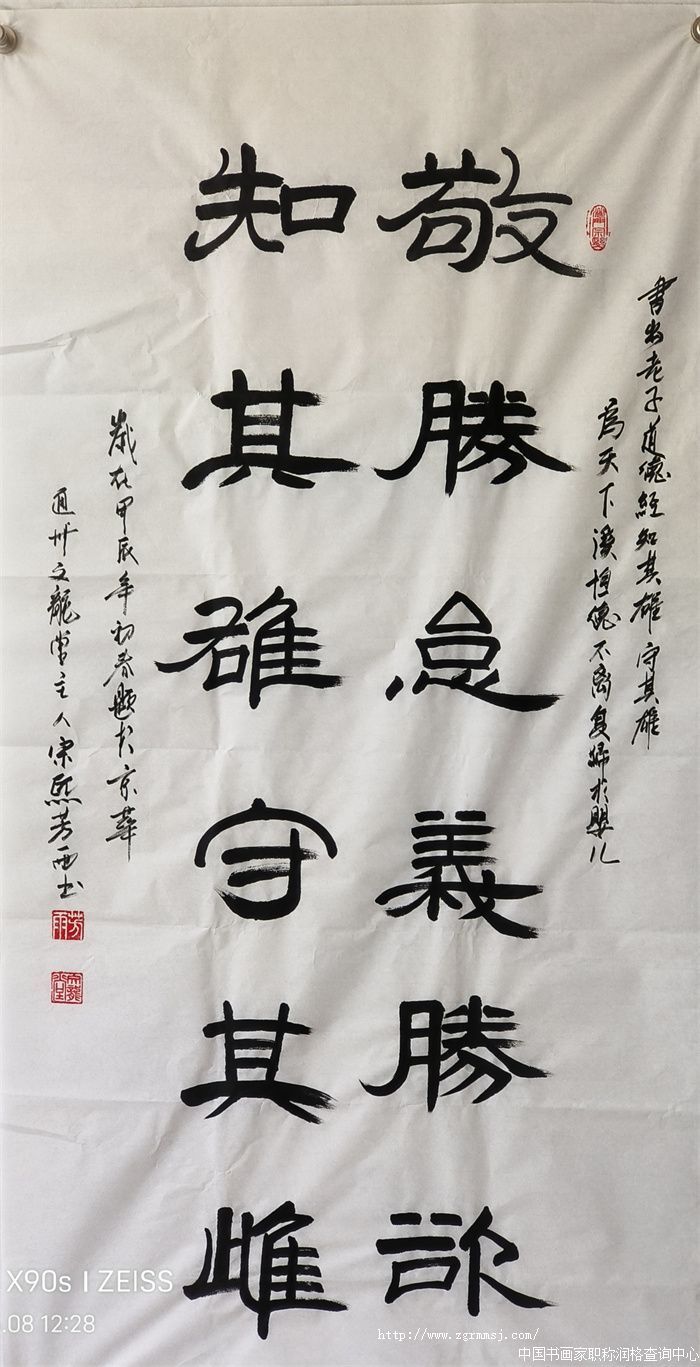 書为老子道德經知其雄守其雌
為天下溪恒德不离复歸於嬰儿
敬勝怠義勝欲
知其雄守其雌
歲在甲辰年初春題於京華
通州文龍堂主人宋熙芳雨书
芳雨
X90s | ZEISS
.08 12:28
http://www.zgrmmsj.com/
中国书画家职称润格查询中心